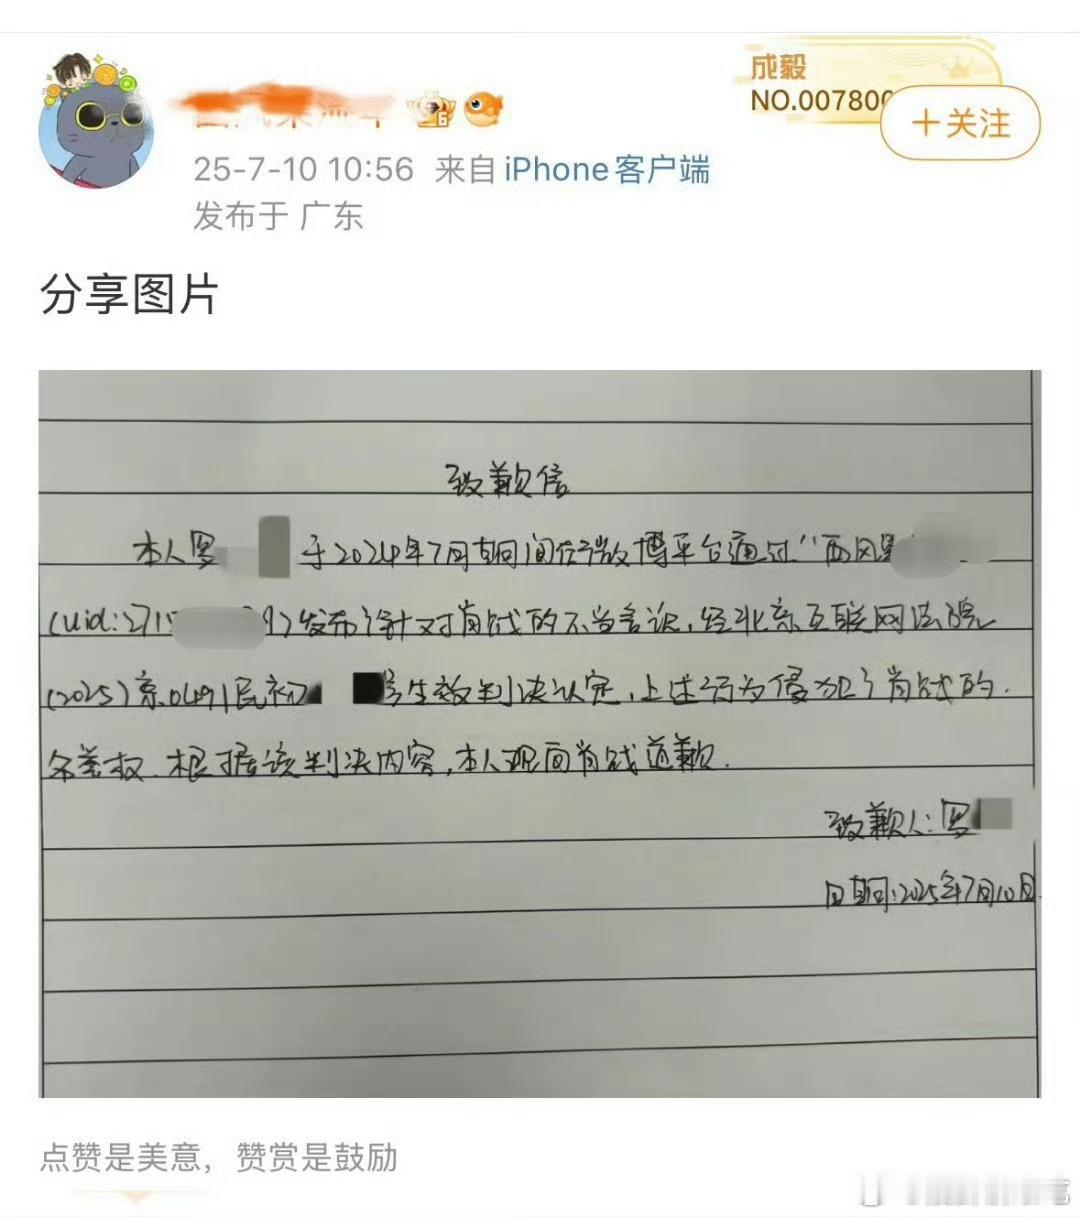 成毅
NO.007800
+关注
25-7-10 10:56 来自 iPhone客户端
发布于 广东
分享图片
致歉信
本人罗 于2024年7月期间在微博平台通过“西风
(uid:271 9)发布针对肖战的不当言论,经北京互联网法院
(2025)京0491民初 号生效判决认定,上述行为侵犯了肖战的
名誉权.根据该判决内容,本人现向肖战道歉.
致歉人:罗
日期:2025年7月10日
点赞是美意，赞赏是鼓励